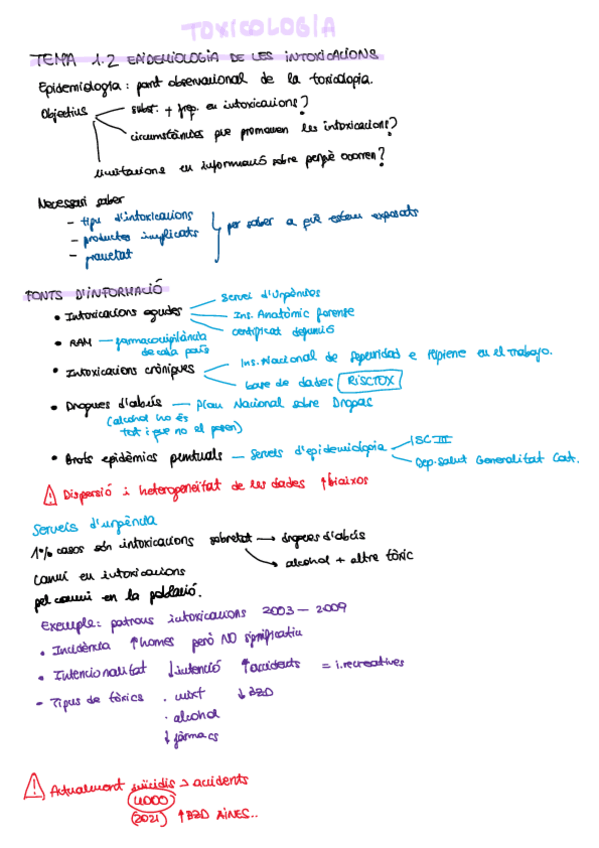 TOXICOLOGIA
TEMA 1.2 EPIDEMIOLOGIA DE LES INTOXICACIONS
Epidemiologia: part observacional de la toxicologia.
Objectius
subst. + freq. en intoxicacions?
circumstàncies que promouen les intoxicacions?
limitacions en informació sobre perquè ocorren?
Necessari saber
- tipus d'intoxicacions
- productes implicats
- gravetat
per saber a què estem exposats
FONTS D'INFORMACIÓ
• Intoxicacions agudes
Servei d'Urgències
Ins. Anatòmic forense
certificat defunció
• RAM — farmacovigilància
de cada país
• Intoxicacions cròniques
Ins. Nacional de seguridad e Higiene en el trabajo.
base de dades RISCTOX
• Drogues d'abús — Plan Nacional sobre Drogas
(alcohol no és
tot i que no el posen)
• Brots epidèmics puntuals — Serveis d'epidemiologia
ISC III
Dep. Salut Generalitat Cat.
⚠ Dispersió i heterogeneïtat de les dades ↑biaixos
Serveis d'urgència
1% casos són intoxicacions sobretot → drogues d'abús
→ alcohol + altre tòxic
Canvi en intoxicacions
pel canvi en la població.
Exemple: patrons intoxicacions 2003 — 2009
• Incidència ↑homes però NO significatiu
• Intencionalitat ↓intenció ↑accidents = i. recreatives
- Tipus de tòxics . mixt ↓BZD
. alcohol
↓fàrmacs
⚠ Actualment suïcidis > accidents
4000
(2021) ↑BZD AINES..